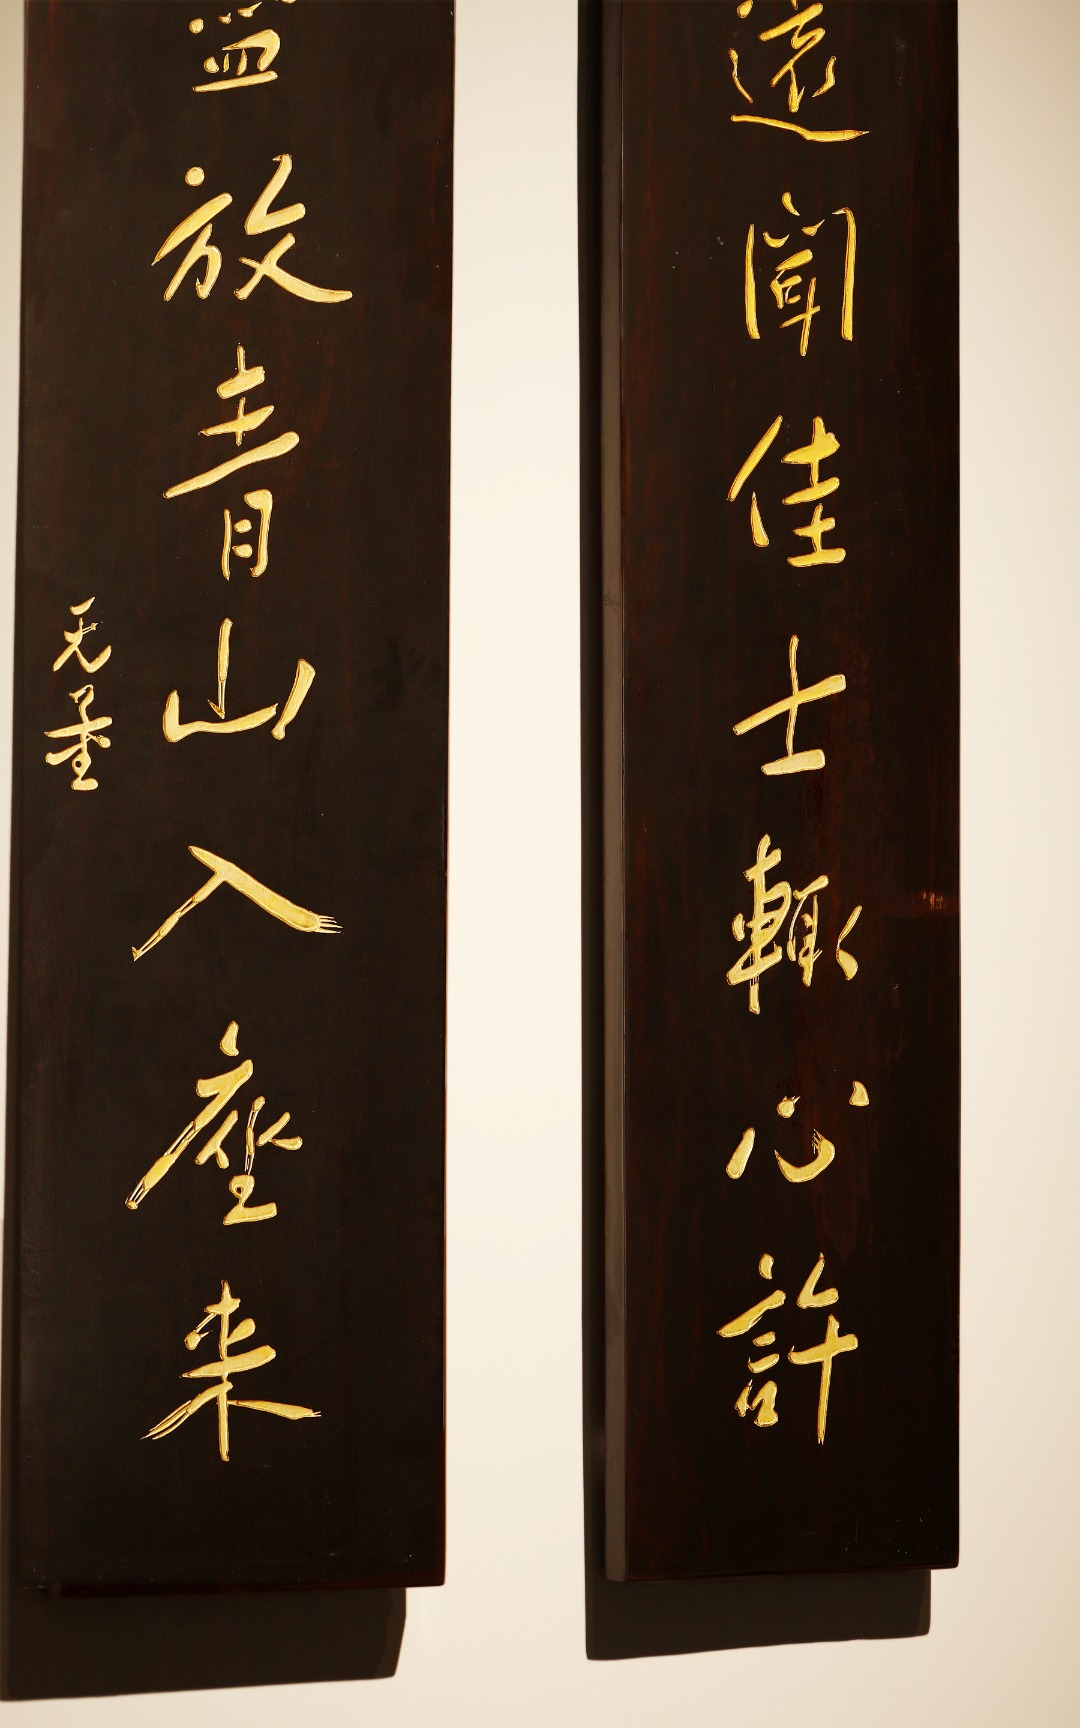 遠聞佳士輒心許
放青山入座来
无量